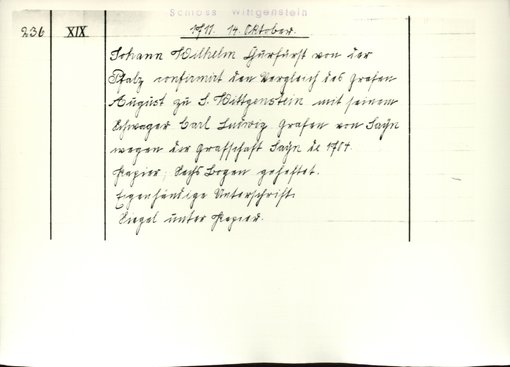 Schloss Wittgenstein
236 XIX 1711. 14. Oktober.
Johann Wilhelm Churfürst von der
Pfalz confirmirt den Vergleich des Grafen
August zu S. Wittgenstein mit seinem
Schwager Carl Ludwig Grafen von Sayn
wegen der Grafschaft Sayn de
Papier; Sechs Bogen geheftet.
Eigenhändige Unterschrift.
Siegel unter Papier.